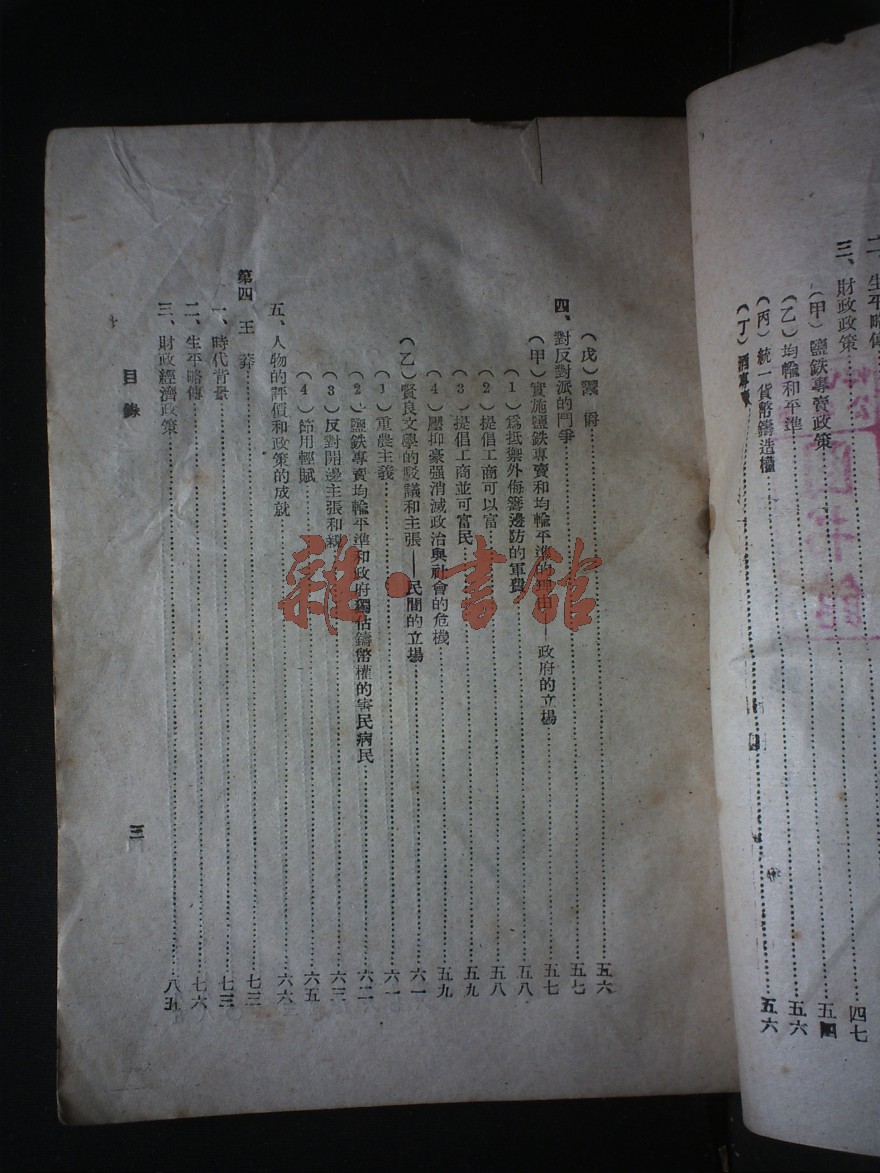 二、生平略傳
三、財政政策……四七
(甲)鹽鉄專賣政策……五四
(乙)均輸和平準……五六
(丙)統一貨幣鑄造權
(丁)酒專賣……五六
(戊)鬻爵……五六
四、對反對派的鬥爭……五七
(甲)實施鹽鉄專賣和均輸平準的理由——政府的立場……五七
(1)爲抵禦外侮籌邊防的軍費……五八
(2)提倡工商可以富……五八
(3)提倡工商並可富民……五九
(4)壓抑豪强消滅政治與社會的危機……五九
(乙)賢良文學的駁議和主張——民間的立場……六一
(1)重農主義……六一
(2)鹽鉄專賣均輸平準和政府獨佔鑄幣權的害民病民……六二
(3)反對開邊主張和親……六三
(4)節用輕賦……六五
五、人物的評價和政策的成就……六六
第四 王莽……七三
一、時代背景……七三
二、生平略傳……七六
三、財政經濟政策……八五
目錄
三
雜·書館